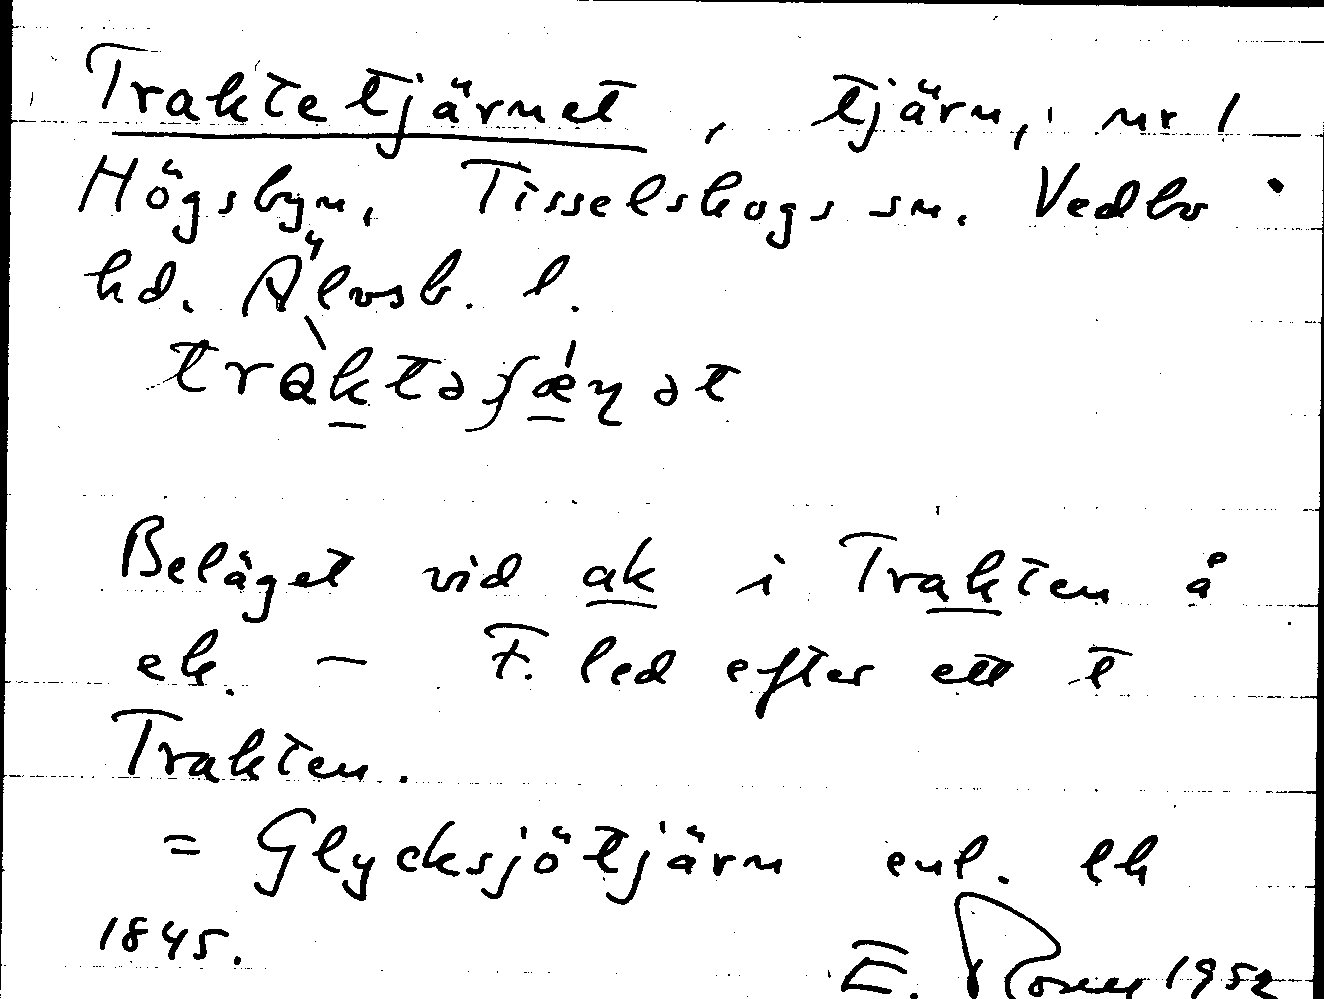 Traktetjärnet, tjärn, nr 1
Högsbyn, Tisselskogs sn. Vedbo
hd. Älvsb. l.
tràktəʃǽɳət
Beläget vid ak i Trakten å
ek. — F. led efter ett t
Trakten.
= Glycksjötjärn enl. lk
1845.
E. 1952